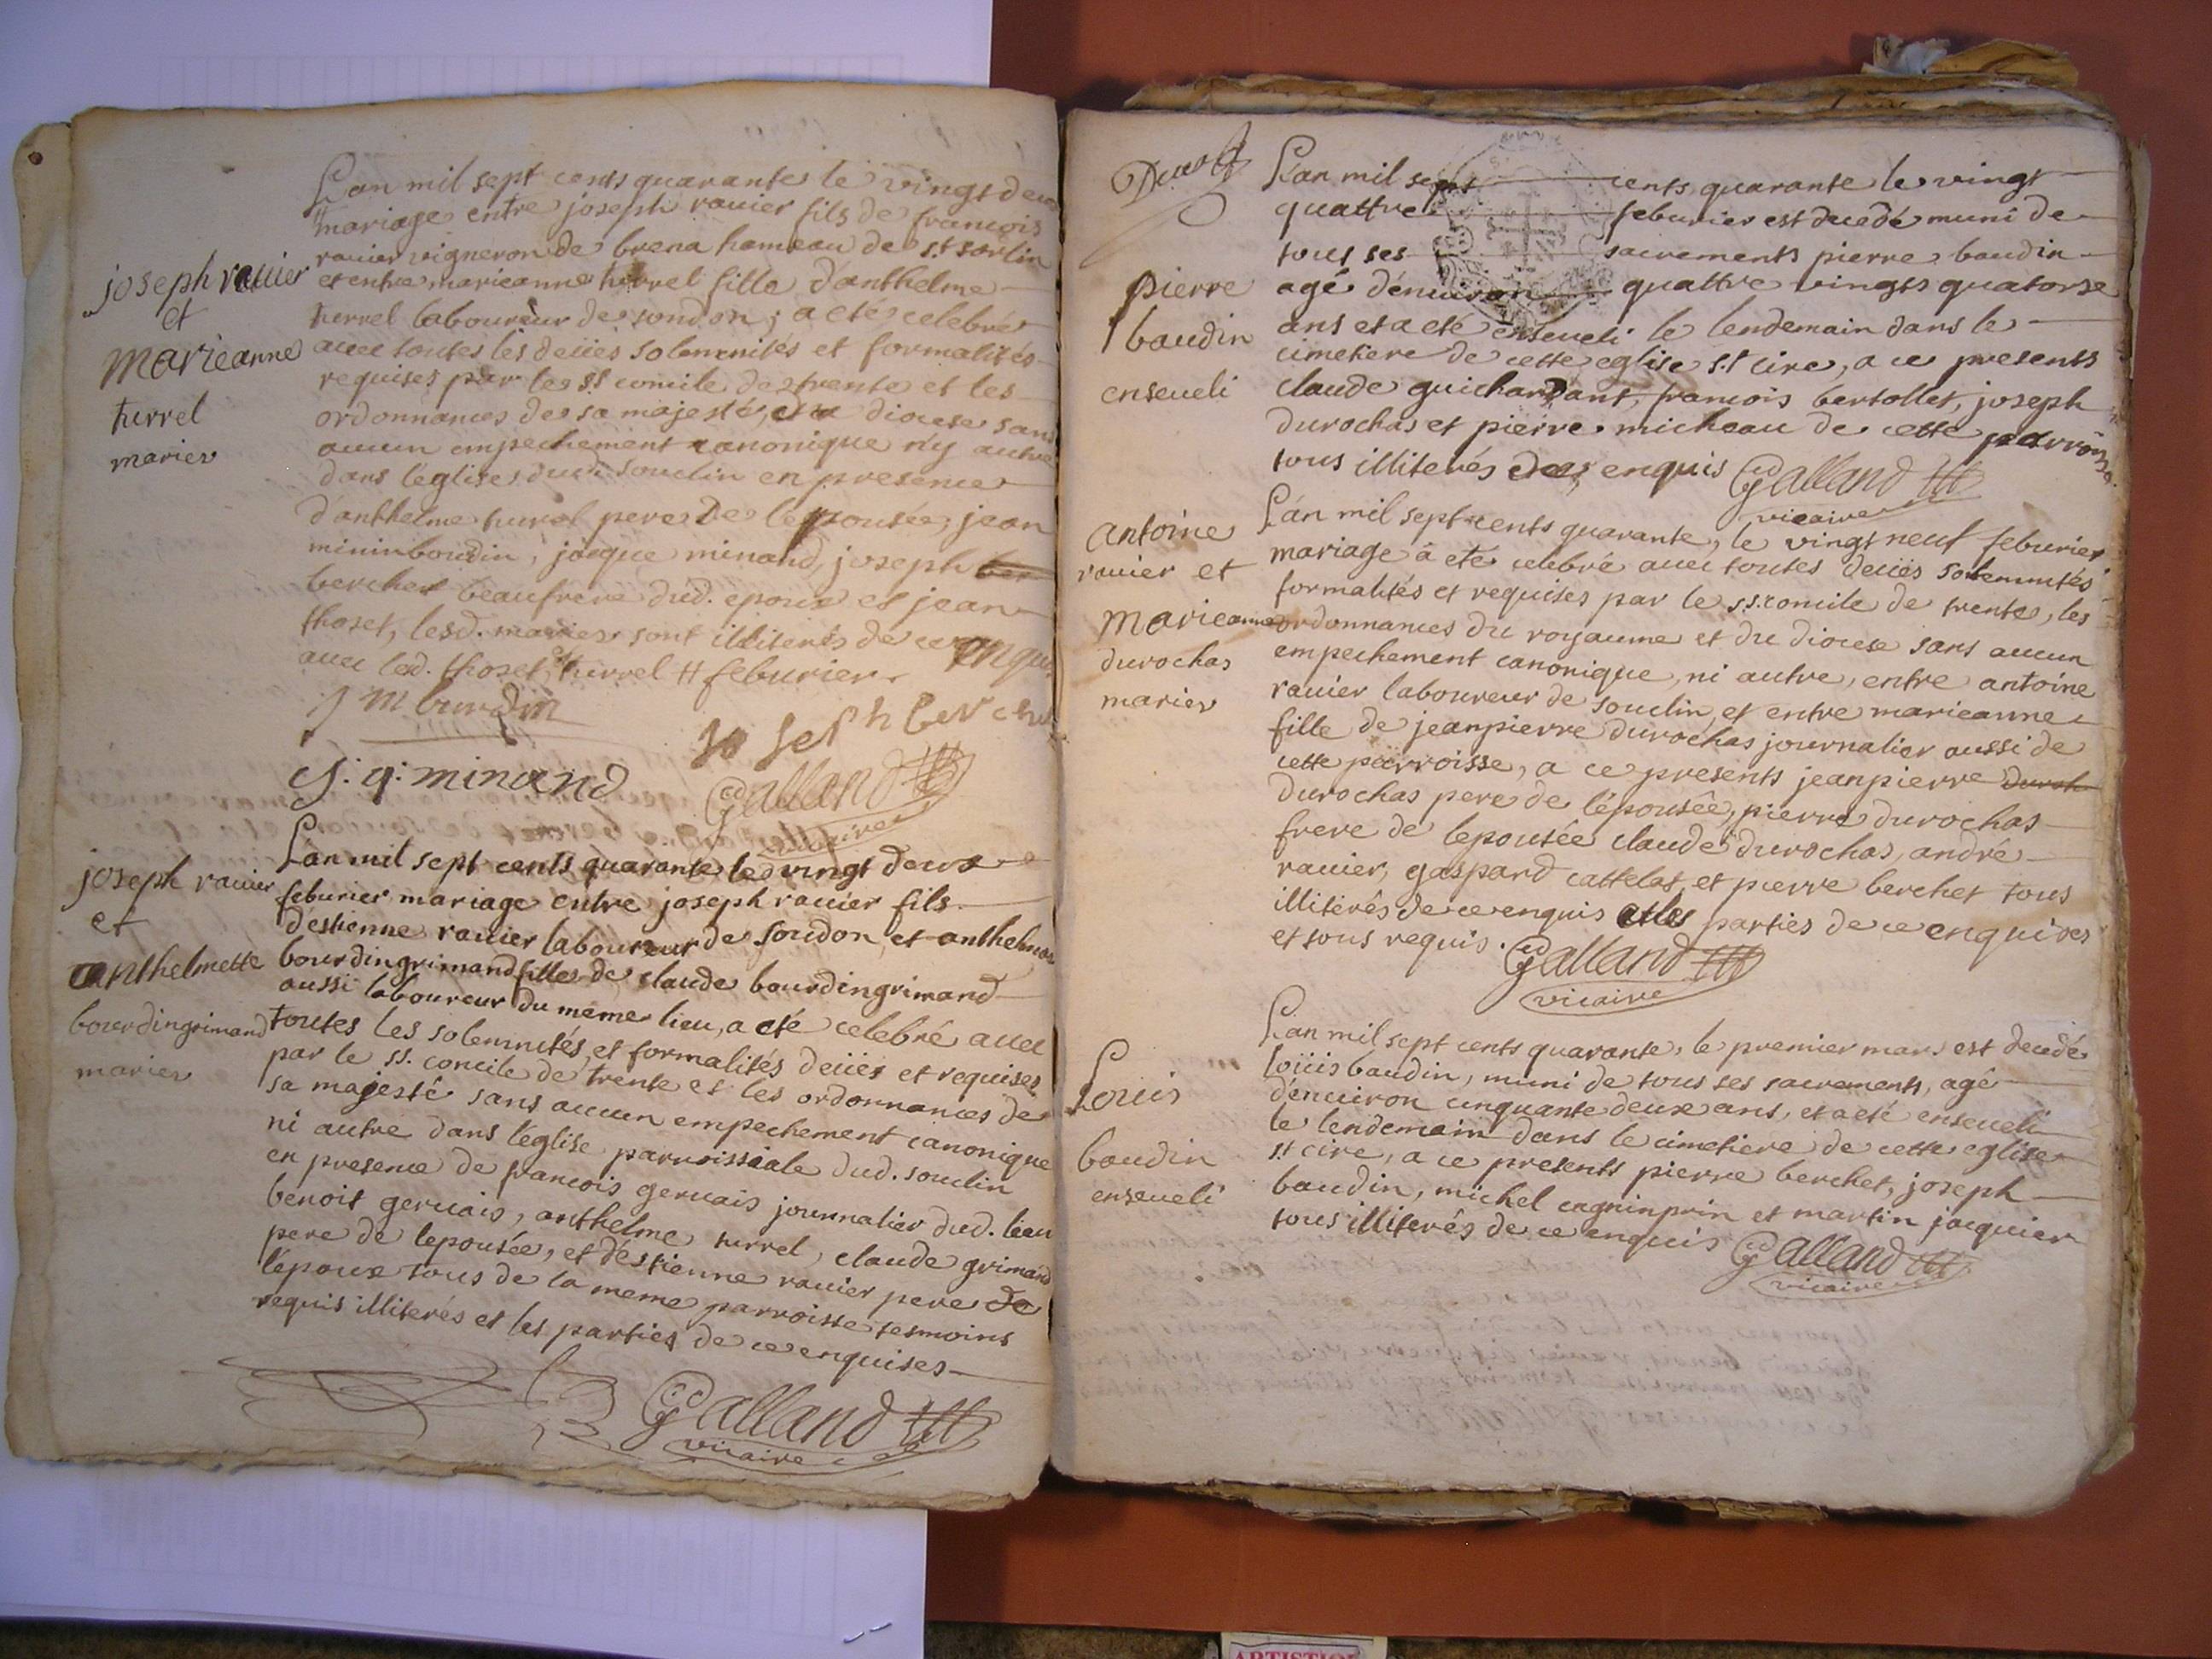 joseph rauier
et
marieanne
turrel
maries
L'an mil sept cents quarante le vingt deux
# mariage entre joseph rauier fils de francois
rauier vigneron de brena hameau de s.t sorlin
et entre marieanne turrel fille d'anthelme
turrel laboureur de soudon, a eté celebré
auec toutes les deües solemnités et formalités
requises par le ss concile de trente et les
ordonnances de sa majesté, diocese sans
aucun empechement canonique n'y autre
dans l'église dud. souclin en presence
d'anthelme turrel pere de l'epousée, jean
mininbourdin, jacque minand, joseph ber
berchet beaufrere dud. epoux et jean
thoset, lesd. maries sont illiterés de ce enquis
auec led. thoset et turrel # feburier
J M burdin
joseph berchet
J. q. minand
Galland
vicaire
joseph rauier
et
anthelmette
bourdingrimand
maries
L'an mil sept cents quarante le vingt deux
feburier mariage entre joseph rauier fils
d'estienne rauier laboureur de soudon, et anthelme
bourdingrimand fille de claude bourdingrimand
aussi laboureur du meme lieu, a eté celebré auec
toutes les solemnités et formalités deües et requises
par le ss. concile de trente et les ordonnances de
sa majesté sans aucun empechement canonique
ni autre dans l'église parroissiale dud. souclin
en presence de francois geruais journalier dud. lieu
benoit geruais, anthelme turrel, claude grimand
pere de l'epousée, et d'estienne rauier pere de
l'epoux tous de la meme parroisse tesmoins
requis illiterés et les parties de ce enquises
Galland
vicaire
pierre
baudin
enseueli
L'an mil sept cents quarante le vingt
quattre feburier est decedé muni de
tous ses sacrements pierre baudin
agé d'enuiron quattre vingts quatorse
ans et a eté enseueli le lendemain dans le
cimetiere de cette eglise s.t cire, a ce presents
claude guichardant, francois bertollet, joseph
durochas et pierre micheau de cette parroisse
tous illiterés de ce enquis Galland
vicaire
antoine
rauier et
marieanne
durochas
maries
L'an mil sept cents quarante, le vingt neuf feburier
mariage à eté celebré auec toutes deües solemnités
formalités et requises par le s.s. concile de trente, les
ordonnances du royaume et du diocese sans aucun
empechement canonique, ni autre, entre antoine
rauier laboureur de souclin, et entre marieanne
fille de jeanpierre durochas journalier aussi de
cette parroisse, a ce presents jeanpierre duroch
durochas pere de l'épousée, pierre durochas
frere de lepousée claude durochas, andré
rauier, gaspard cattelat, et pierre berchet tous
illiterés de ce enquis et les parties de ce enquises
et tous requis. Galland
vicaire
Louis
baudin
enseueli
L'an mil sept cents quarante, le premier mars est decedé
loüis baudin, muni de tous ses sacrements, agé
d'enuiron cinquante deux ans, et a eté enseueli
le lendemain dans le cimetiere de cette eglise
s.t cire, a ce presents pierre berchet, joseph
baudin, michel cagninprin et martin jacquier
tous illiterés de ce enquis Galland
vicaire